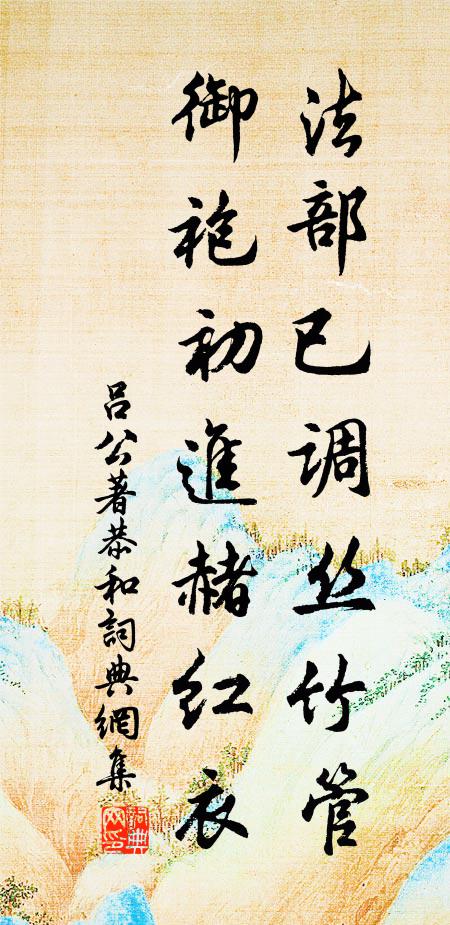 法部已调丝竹管
御袍初進赭红衣
吕公著恭和詞典網集
詞典
网印